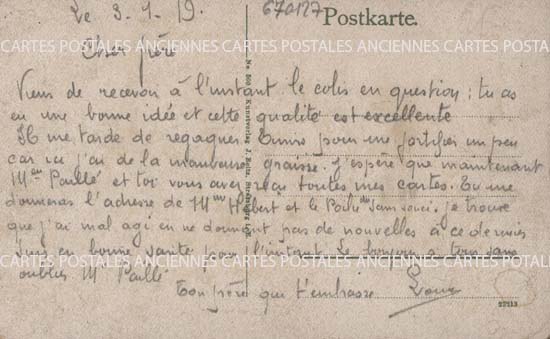 Le 3.1.19.
670127
Postkarte.
Cher frère
CARTES POSTALES ANCIENNES CARTES POSTALES ANCIENNES CARTES POSTALES
Viens de recevoir à l'instant le colis en question : tu as
eu une bonne idée et cette qualité est excellente
Il me tarde de regagner Tunis pour me fortifier un peu
car ici j'ai de la mauvaise graisse. J'espère que maintenant
Mme Paillé et toi vous avez reçu toutes mes cartes. Tu me
donneras l'adresse de Mme Hébert et le Poilu du Sans souci. Je trouve
que j'ai mal agi en ne donnant pas de nouvelles à ce dernier
suis en bonne santé pour l'instant. Le bonjour à tous sans
oublier M Paillé
Ton frère qui t'embrasse
CARTES POSTALES ANCIENNES CARTES POSTALES ANCIENNES CARTES POSTALES
27113